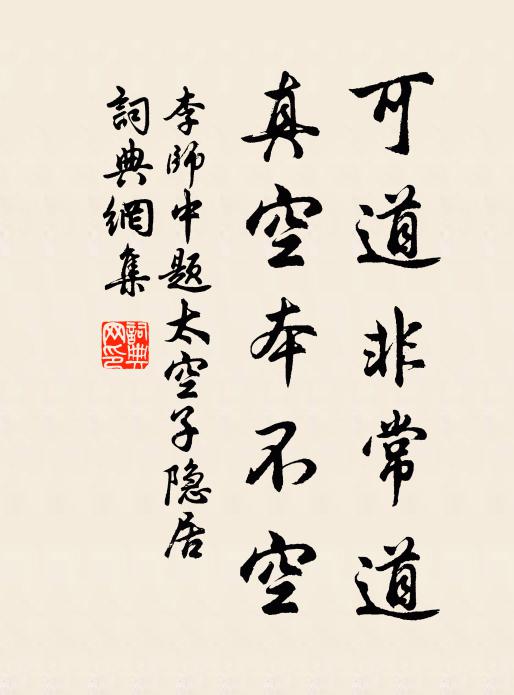 可道非常道
真空本不空
李師中題太空子隱居
詞典網集
詞典網印